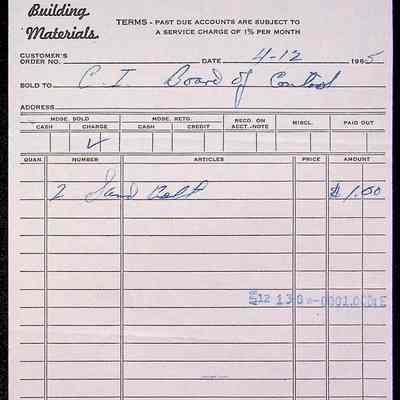 Building
Materials.
TERMS - PAST DUE ACCOUNTS ARE SUBJECT TO
A SERVICE CHARGE OF 1% PER MONTH
CUSTOMER'S
ORDER NO. DATE 4-12 1965
SOLD TO C. I. Board of Control
ADDRESS
MDSE. SOLD MDSE. RETD. RECD. ON ACCT.-NOTE MISCL. PAID OUT
CASH CHARGE CASH CREDIT
QUAN. NUMBER ARTICLES PRICE AMOUNT
2 Sand Belt $1.00
APR 12